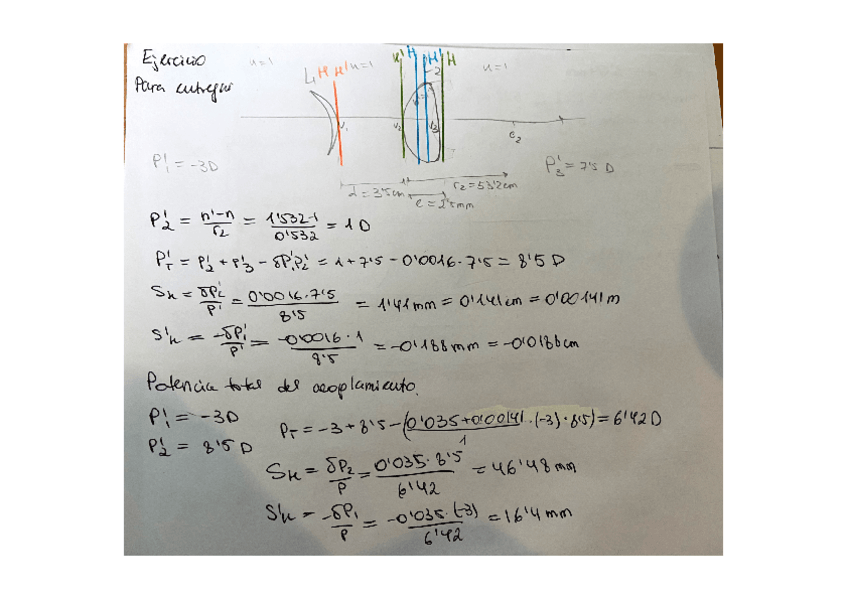 Ejercicio
Para entregar
n=1
L1 H H' n=1
H' H H' H
2
n=1
V1
V2
V3
c2
P'1 = -3D
P'3 = 7'5 D
d = 3'5cm
r2 = 53'2cm
e = 2'4mm
P'2 = n'-n / r2 = 1'532-1 / 0'532 = 1 D
P'T = P'2 + P'3 - δP'1P'2 = 1 + 7'5 - 0'0016·7'5 = 8'5 D
SH = δP'2 / P' = 0'0016·7'5 / 8'5 = 1'41mm = 0'141cm = 0'00141m
S'H = -δP'1 / P' = -0'0016·1 / 8'5 = -0'188mm = -0'0188cm
Potencia total del acoplamiento.
P'1 = -3D
PT = -3 + 8'5 - (0'035+0'00141 / 1 ·(-3)·8'5) = 6'42D
P'2 = 8'5 D
SH = δP2 / P = 0'035·8'5 / 6'42 = 46'48mm
S'H = -δP1 / P = -0'035·(-3) / 6'42 = 16'4mm